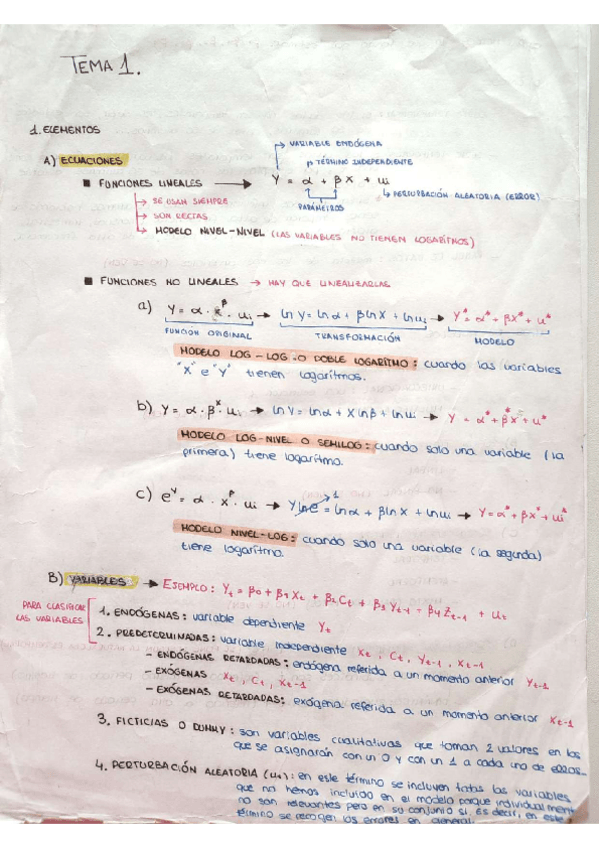 TEMA 1.
1. ELEMENTOS
A) ECUACIONES
VARIABLE ENDÓGENA
TÉRMINO INDEPENDIENTE
■ FUNCIONES LINEALES → Y = α + βX + ui
PERTURBACIÓN ALEATORIA (ERROR)
PARÁMETROS
→ SE USAN SIEMPRE
→ SON RECTAS
→ MODELO NIVEL-NIVEL (LAS VARIABLES NO TIENEN LOGARÍTMOS)
■ FUNCIONES NO LINEALES → HAY QUE LINEALIZARLAS
a) Y = α · X^β · ui → ln Y = ln α + β ln X + ln ui → Y* = α* + βX* + u*
FUNCIÓN ORIGINAL TRANSFORMACIÓN MODELO
MODELO LOG-LOG O DOBLE LOGARÍTMO: cuando las variables
"X" e "Y" tienen logaritmos.
b) Y = α · β^X · ui → ln Y = ln α + X ln β + ln ui → Y* = α* + β*X + u*
MODELO LOG-NIVEL O SEMILOG: cuando solo una variable (la
primera) tiene logaritmo.
c) e^Y = α · X^β · ui → Y ln e = ln α + β ln X + ln ui → Y = α* + βX* + ui*
1
MODELO NIVEL-LOG: cuando sólo una variable (la segunda)
tiene logaritmo.
B) VARIABLES → EJEMPLO: Yt = β0 + β1 Xt + β2 Ct + β3 Yt-1 + β4 Zt-1 + ut
PARA CLASIFICAR
LAS VARIABLES
1. ENDÓGENAS: variable dependiente Yt
2. PREDETERMINADAS: variable independiente Xt, Ct, Yt-1, Xt-1
- ENDÓGENAS RETARDADAS: endógena referida a un momento anterior Yt-1
- EXÓGENAS Xt, Ct, Xt-1
- EXÓGENAS RETARDADAS: exógena referida a un momento anterior Xt-1
3. FICTICIAS O DUMMY: son variables cualitativas que toman 2 valores en los
que se asignarán con un 0 y con un 1 a cada uno de ellos.
4. PERTURBACIÓN ALEATORIA (ut): en este término se incluyen todas las variables
que no hemos incluido en el modelo porque individualment
no son relevantes pero en su conjunto si, es decir, en este
término se recogen los errores en general.